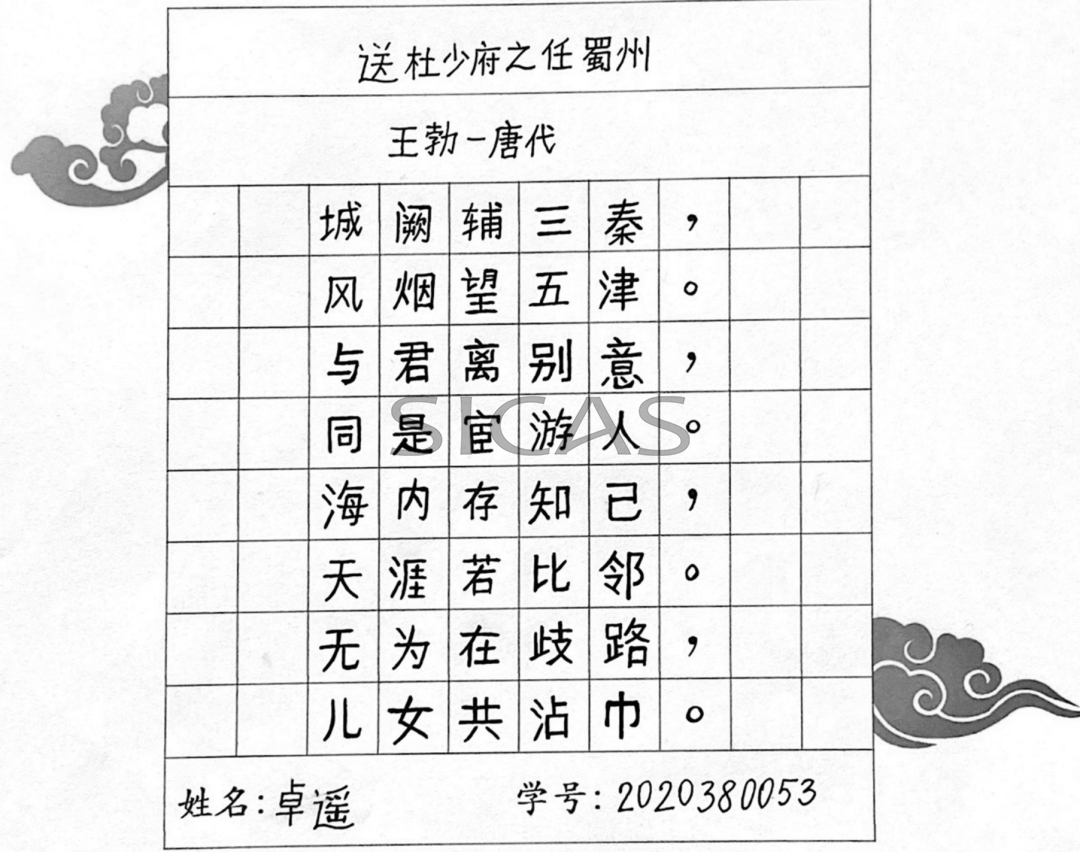 送杜少府之任蜀州
王勃一唐代
城阙辅三秦，
风烟望五津。
与君离别意，
同是宦游人。
SICAS
海内存知己，
天涯若比邻。
无为在歧路，
儿女共沾巾。
姓名：卓遥 学号：2020380053